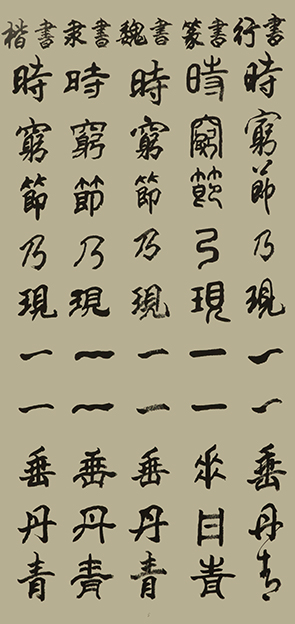 行書
時窮節乃現一一垂丹青
篆書
時窮節乃現一一垂丹青
魏書
時窮節乃現一一垂丹青
隶書
時窮節乃現一一垂丹青
楷書
時窮節乃現一一垂丹青